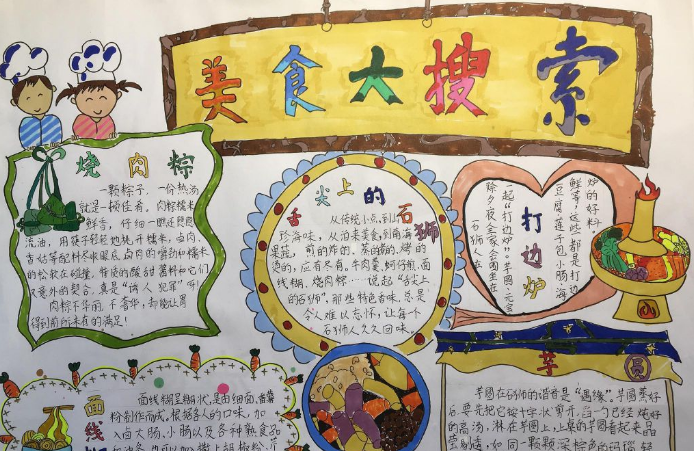 美食大搜索
烧肉粽
一颗粽子，一份热汤
就是一顿佳肴。肉粽糯米
鲜香，仔细一瞧还
流油，用筷子轻轻地挑开糯米，卤肉、
香菇等配料尽收眼底。卤肉的劲和糯米
的松软在碰撞，特使的酸甜酱料和它们
又意外的契合，真是"诱人犯罪"啊！
肉粽不华丽、不奢华，却能让胃
得到前所未有的满足！
舌尖上的石狮
从传统小点，到山
珍海味，从泊来美食，到南海
果蔬，煎的炸的，蒸的煮的，烤的
烫的，应有尽有。牛肉羹、蚵仔煎、面
线糊、烧肉粽……说起"舌尖上
的石狮"，那些特色香味，总是
令人难以忘怀，让每个
石狮人久久回味。
打边炉
石狮人在
除夕夜全家会围坐在
一起"打边炉"。芋圆、元宝
豆腐、莲子包、小肠、海
鲜等，这些都是打边
炉的好料
面线
面线糊呈糊状，是由细面、番薯
粉制作而成。根据各人的口味，加
入卤大肠、小肠以及各种熟食品
芋圆
芋圆在石狮的谐音是"遇缘"。芋圆蒸好
后，要先把它按十字状剪开，当一勺已经炖好
的高汤，淋在芋圆上，上桌的芋圆看起来晶
莹易透，如同一颗颗深棕色的玛瑙，轻